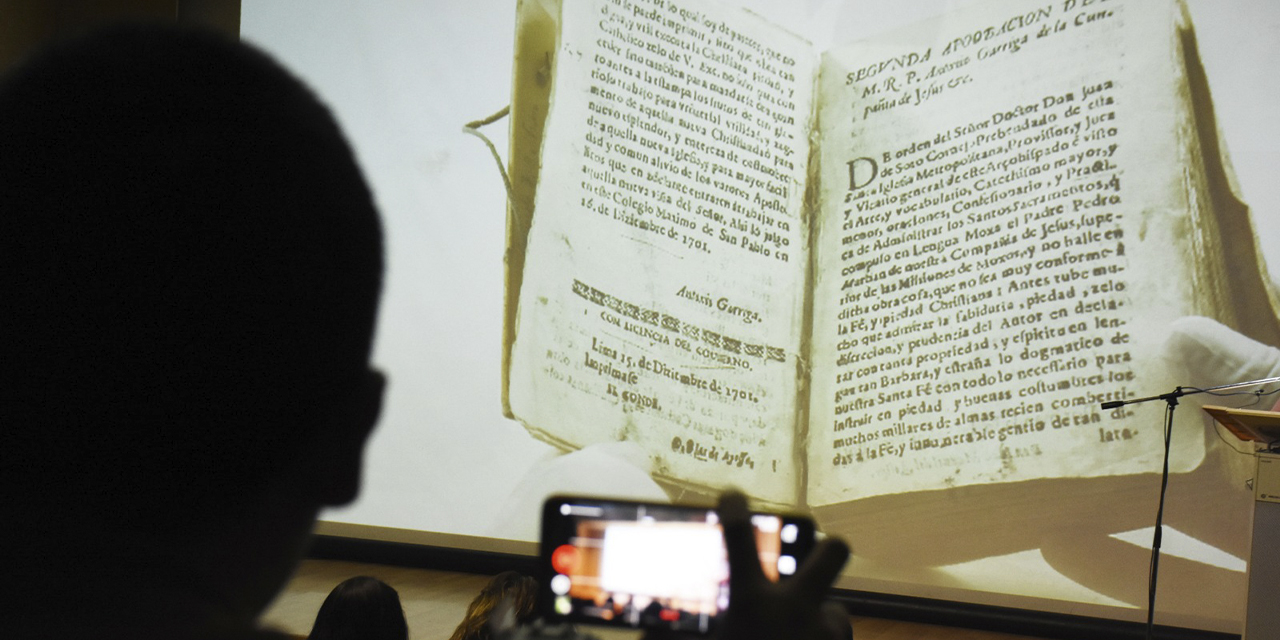 de lo qual soy de parecer, que no
se puede imprimir, sino que ella tan
digna, y vtil executa la Christiana piedad, y
Catholico zelo de V. Exc. no solo para con
ceder sino tambien para mandarle dea quan
to antes a la estampa los frutos de tan glo-
rioso trabajo para vniversal vtilidad, y aug-
mento de aquella nueva Christiandad para
nuevo esplendor, y entereza de costumbres
de aquella nueva Iglesia, y para mayor facili
dad y comun alivio de los varones Aposto-
licos que en adelante entraren à trabajar en
aquella nueva viña del Señor. Assi lo juzgo
en este Colegio Maximo de San Pablo en
16. de Diziembre de 1701.
Antonio Garriga.
CON LICENCIA DEL GOVIERNO.
Lima 15. de Diziembre de 1701.
Imprimase
EL CONDE.
D. Blas de Ayessa
SEGVNDA APROBACION DEL
M. R. P. Antonio Garriga de la Com-
pañia de Jesus &c.
DE orden del Señor Doctor Don Juan
de Soto Cornejo, Prebendado de esta
Santa Iglesia Metropolitana, Provissor, y Juez
y Vicario general de este Arçobispado è visto
el Arte, y vocabulario, Catechismo mayor, y
menor, oraciones, Confessionario, y Practi-
ca de Administrar los Santos Sacramentos, q̃
compuso en Lengua Moxa el Padre Pedro
Marban de nuestra Compañia de Jesus, supe-
rior de las Missiones de Moxos, y no halle en
dicha obra cosa, que no sea muy conforme à
la Fé, y piedad Christiana: Antes tube mu-
cho que admirar la sabiduria, piedad, zelo
discrecion, y prudencia del Autor en decla-
rar con tanta propriedad, y espiritu en len-
gua tan Barbara, y estraña lo dogmatico de
nuestra Santa Fé con todo lo necessario para
instruir en piedad y buenas costumbres los
muchos millares de almas recien comberti-
das à la Fé, y innumerable gentio de tan di-
lata-